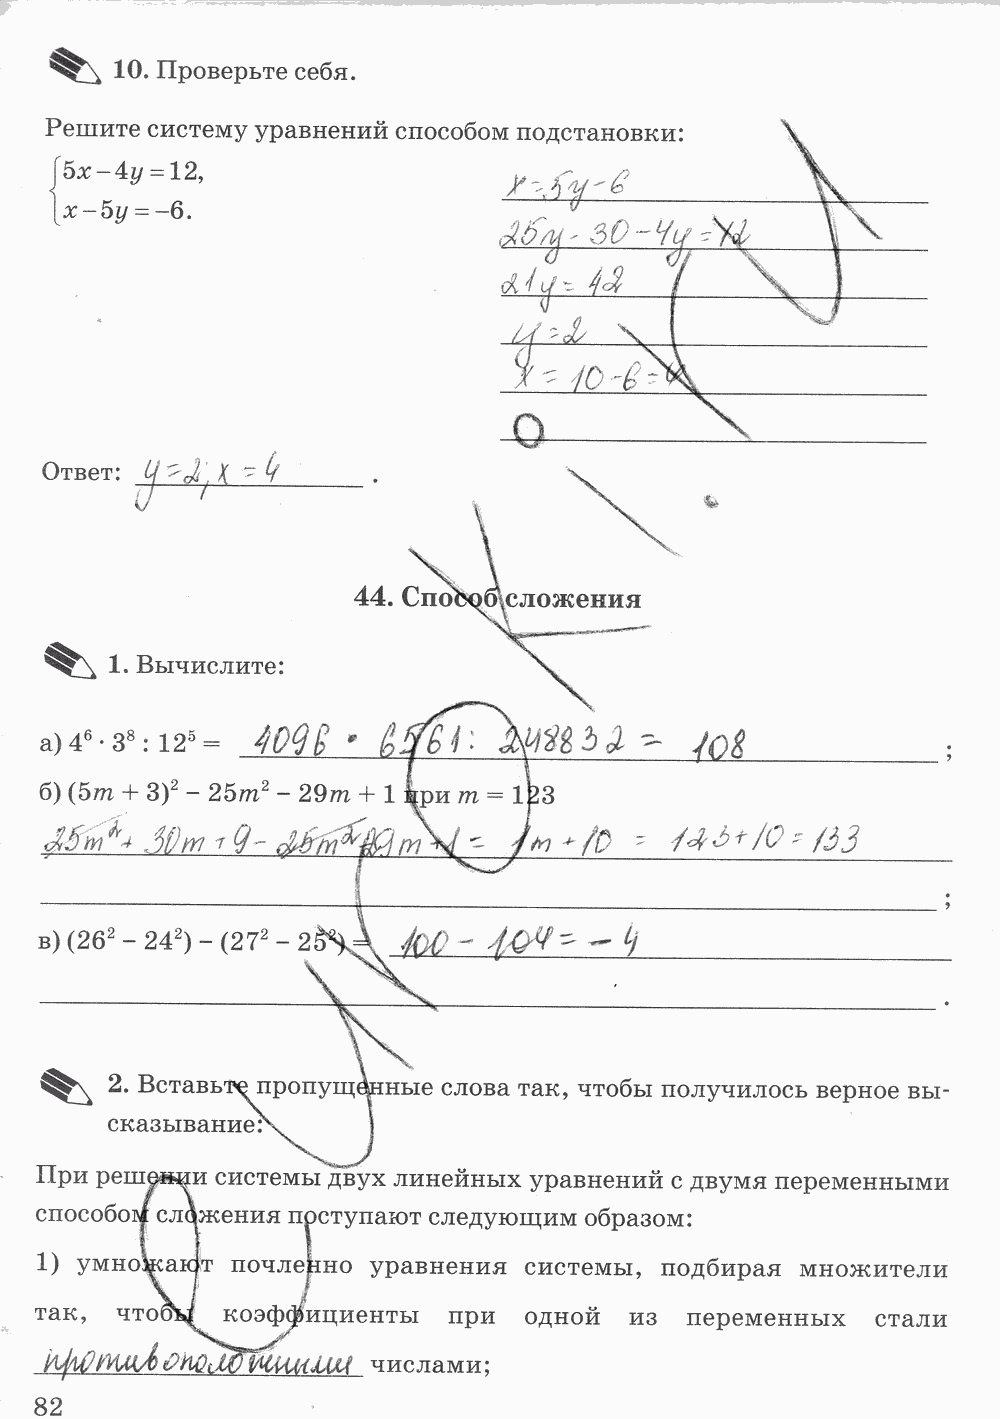 10. Проверьте себя.
Решите систему уравнений способом подстановки:
5x – 4y = 12,
x – 5y = –6.
x = 5y - 6
25y - 30 - 4y = 12
21y = 42
y = 2
x = 10 - 6 = 4
Ответ: y = 2; x = 4 .
44. Способ сложения
1. Вычислите:
а) 4⁶ · 3⁸ : 12⁵ = 4096 · 6561 : 248832 = 108 ;
б) (5m + 3)² – 25m² – 29m + 1 при m = 123
25m² + 30m + 9 - 25m² - 29m + 1 = 1m + 10 = 123 + 10 = 133
;
в) (26² – 24²) – (27² – 25²) = 100 - 104 = - 4
.
2. Вставьте пропущенные слова так, чтобы получилось верное вы-
сказывание:
При решении системы двух линейных уравнений с двумя переменными
способом сложения поступают следующим образом:
1) умножают почленно уравнения системы, подбирая множители
так, чтобы коэффициенты при одной из переменных стали
противоположными числами;
82